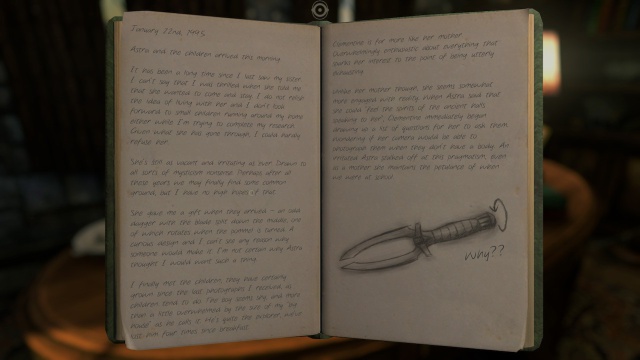 January 22nd, 1945
Astra and the children arrived this morning.
It has been a long time since I last saw my sister.
I can't say that I was thrilled when she told me
that she wanted to come and stay. I do not relish
the idea of living with her and I don't look
forward to small children running around my home
either while I'm trying to complete my research.
Given what she has gone through, I could hardly
refuse her.
She's still as vacant and irritating as ever. Drawn to
all sorts of mysticism nonsense. Perhaps after all
these years we may finally find some common
ground, but I have no high hopes of that.
She gave me a gift when they arrived - an odd
dagger with the blade split down the middle, one
of which rotates when the pommel is turned. A
curious design and I can't see any reason why
someone would make it. I'm not certain why Astra
thought I would want such a thing.
I finally met the children, they have certainly
grown since the last photographs I received as
children tend to do. The boy seems shy and more
than a little overwhelmed by the size of my "big
house" as he calls it. He's quite the explorer, we've
lost him four times since breakfast.
Clementine is far more like her mother.
Overwhelmingly enthusiastic about everything that
sparks her interest to the point of being utterly
exhausting.
Unlike her mother though, she seems somewhat
more engaged with reality. When Astra said that
she could "feel the spirits of the ancient halls
speaking to her", Clementine immediately began
drawing up a list of questions for her to ask them
wondering if her camera would be able to
photograph them when they don't have a body. An
annoyed Astra stalked off at this pragmatism, even
as a mother she maintains the petulance of when
we were at school.
Why??